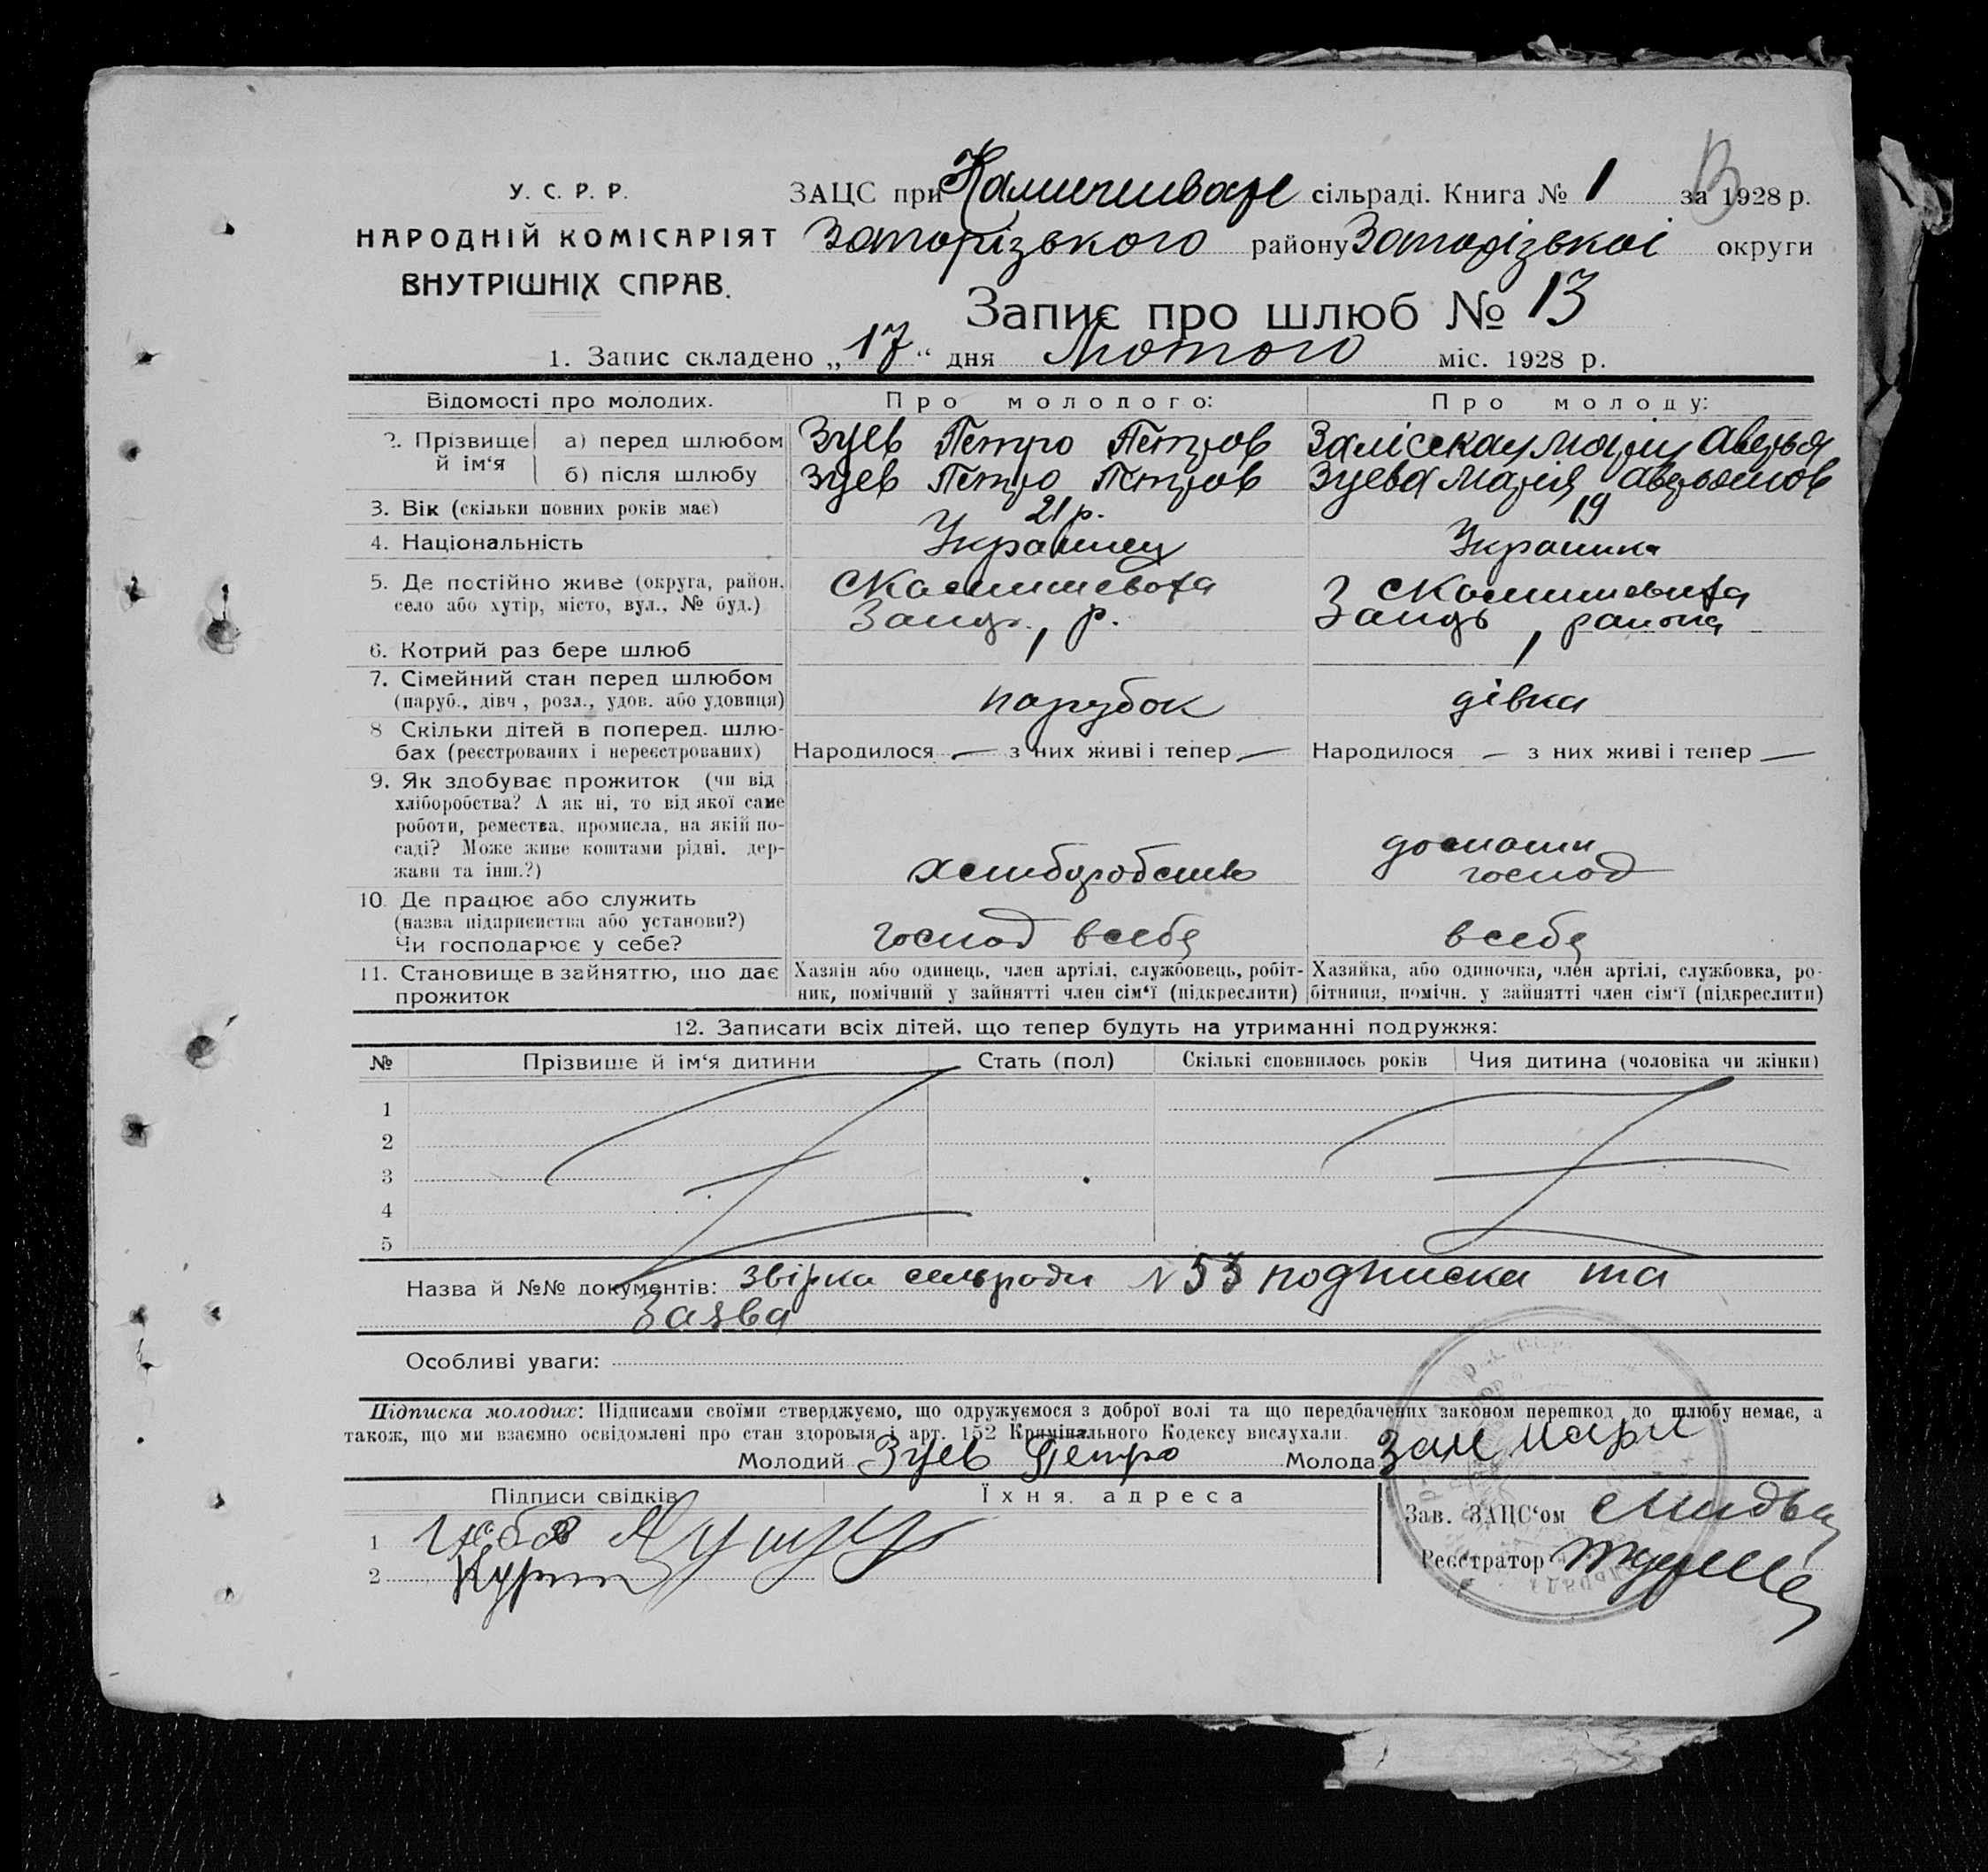 У. С. Р. Р.
НАРОДНІЙ КОМІСАРІЯТ
ВНУТРІШНІХ СПРАВ.
ЗАЦС при сільраді. Книга № 1 за 1928 р.
Запорізького району Запорізькоі округи
Запис про шлюб № 13
1. Запис складено „17“ дня Лютого міс. 1928 р.
Відомості про молодих.
Про молодого:
Про молоду:
2. Прізвище й ім‘я
а) перед шлюбом
Зуєв Петро Петров
Марія
б) після шлюбу
Зуев Петро Петров
Зуева Марія
3. Вік (скільки повних років має)
21 р.
19
4. Національність
Украинец
Украинка
5. Де постійно живе (округа, район,
село або хутір, місто, вул., № буд.)
р.
района
6. Котрий раз бере шлюб
1
1
7. Сімейний стан перед шлюбом
(паруб., дівч., розл., удов. або удовиця)
парубок
дівка
8 Скільки дітей в поперед. шлю-
бах (реєстрованих і нереєстрованих)
Народилося — з них живі і тепер —
Народилося — з них живі і тепер —
9. Як здобуває прожиток (чи від
хліборобства? А як ні, то від якої саме
роботи, ремества, промисла, на якій по-
саді? Може живе коштами рідні, дер-
жави та інш.?)
господ
10. Де працює або служить
(назва підприємства або установи?)
Чи господарює у себе?
господ всебе
всебе
11. Становище в зайняттю, що дає
прожиток
Хазяїн або одинець, член артілі, службовець, робіт-
ник, помічний у зайнятті член сім‘ї (підкреслити)
Хазяйка, або одиночка, член артілі, службовка, ро-
бітниця, помічн. у зайнятті член сім‘ї (підкреслити)
12. Записати всіх дітей, що тепер будуть на утриманні подружжя:
№
Прізвише й ім‘я дитини
Стать (пол)
Скількі сповнилось років
Чия дитина (чоловіка чи жінки)
1
2
3
4
5
Назва й №№ документів: звірка сельради N 53 подписка та
Заява
Особливі уваги:
Підписка молодих: Підписами своїми стверджуємо, що одружуємося з доброї волі та що передбачених законом перешкод до шлюбу немає, а
також, що ми взаємно освідомлені про стан здоровля і арт. 152 Кримінального Кодексу вислухали.
Молодий Зуев Петро Молода
Підписи свідків
Їхня адреса
1
2
Зав. ЗАЦС‘ом
Реєстратор